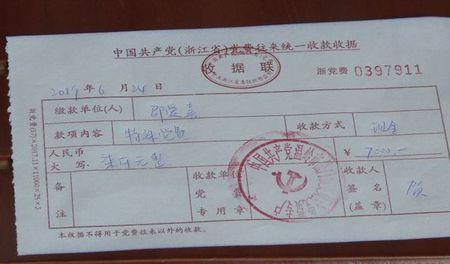 中国共产党(浙江省)党费往来统一收款收据
收据联
浙党费 0397911
2017年6月24日
缴款单位(人)
款项内容 特殊党费 收款方式 现金
人民币
大写 柒仟元整 ¥ 7000.-
备注 收款单位党费专用章 收款人签名(盖章)
中国共产党温岭
本收据不得用于党费往来以外的收款。